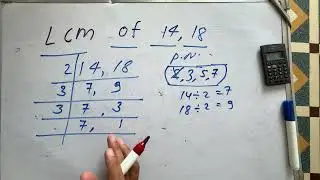 Lcm of 14, 18
2 14, 18
3 7, 9
3 7, 3
7, 1
P.N.
2, 3, 5, 7
14÷2=7
18÷2=9